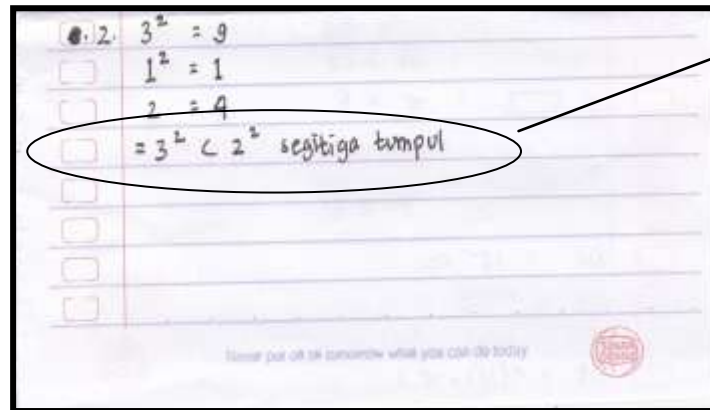 2. 3² = 9
1² = 1
2 = 4
= 3² < 2² segitiga tumpul
Never put off till tomorrow what you can do today